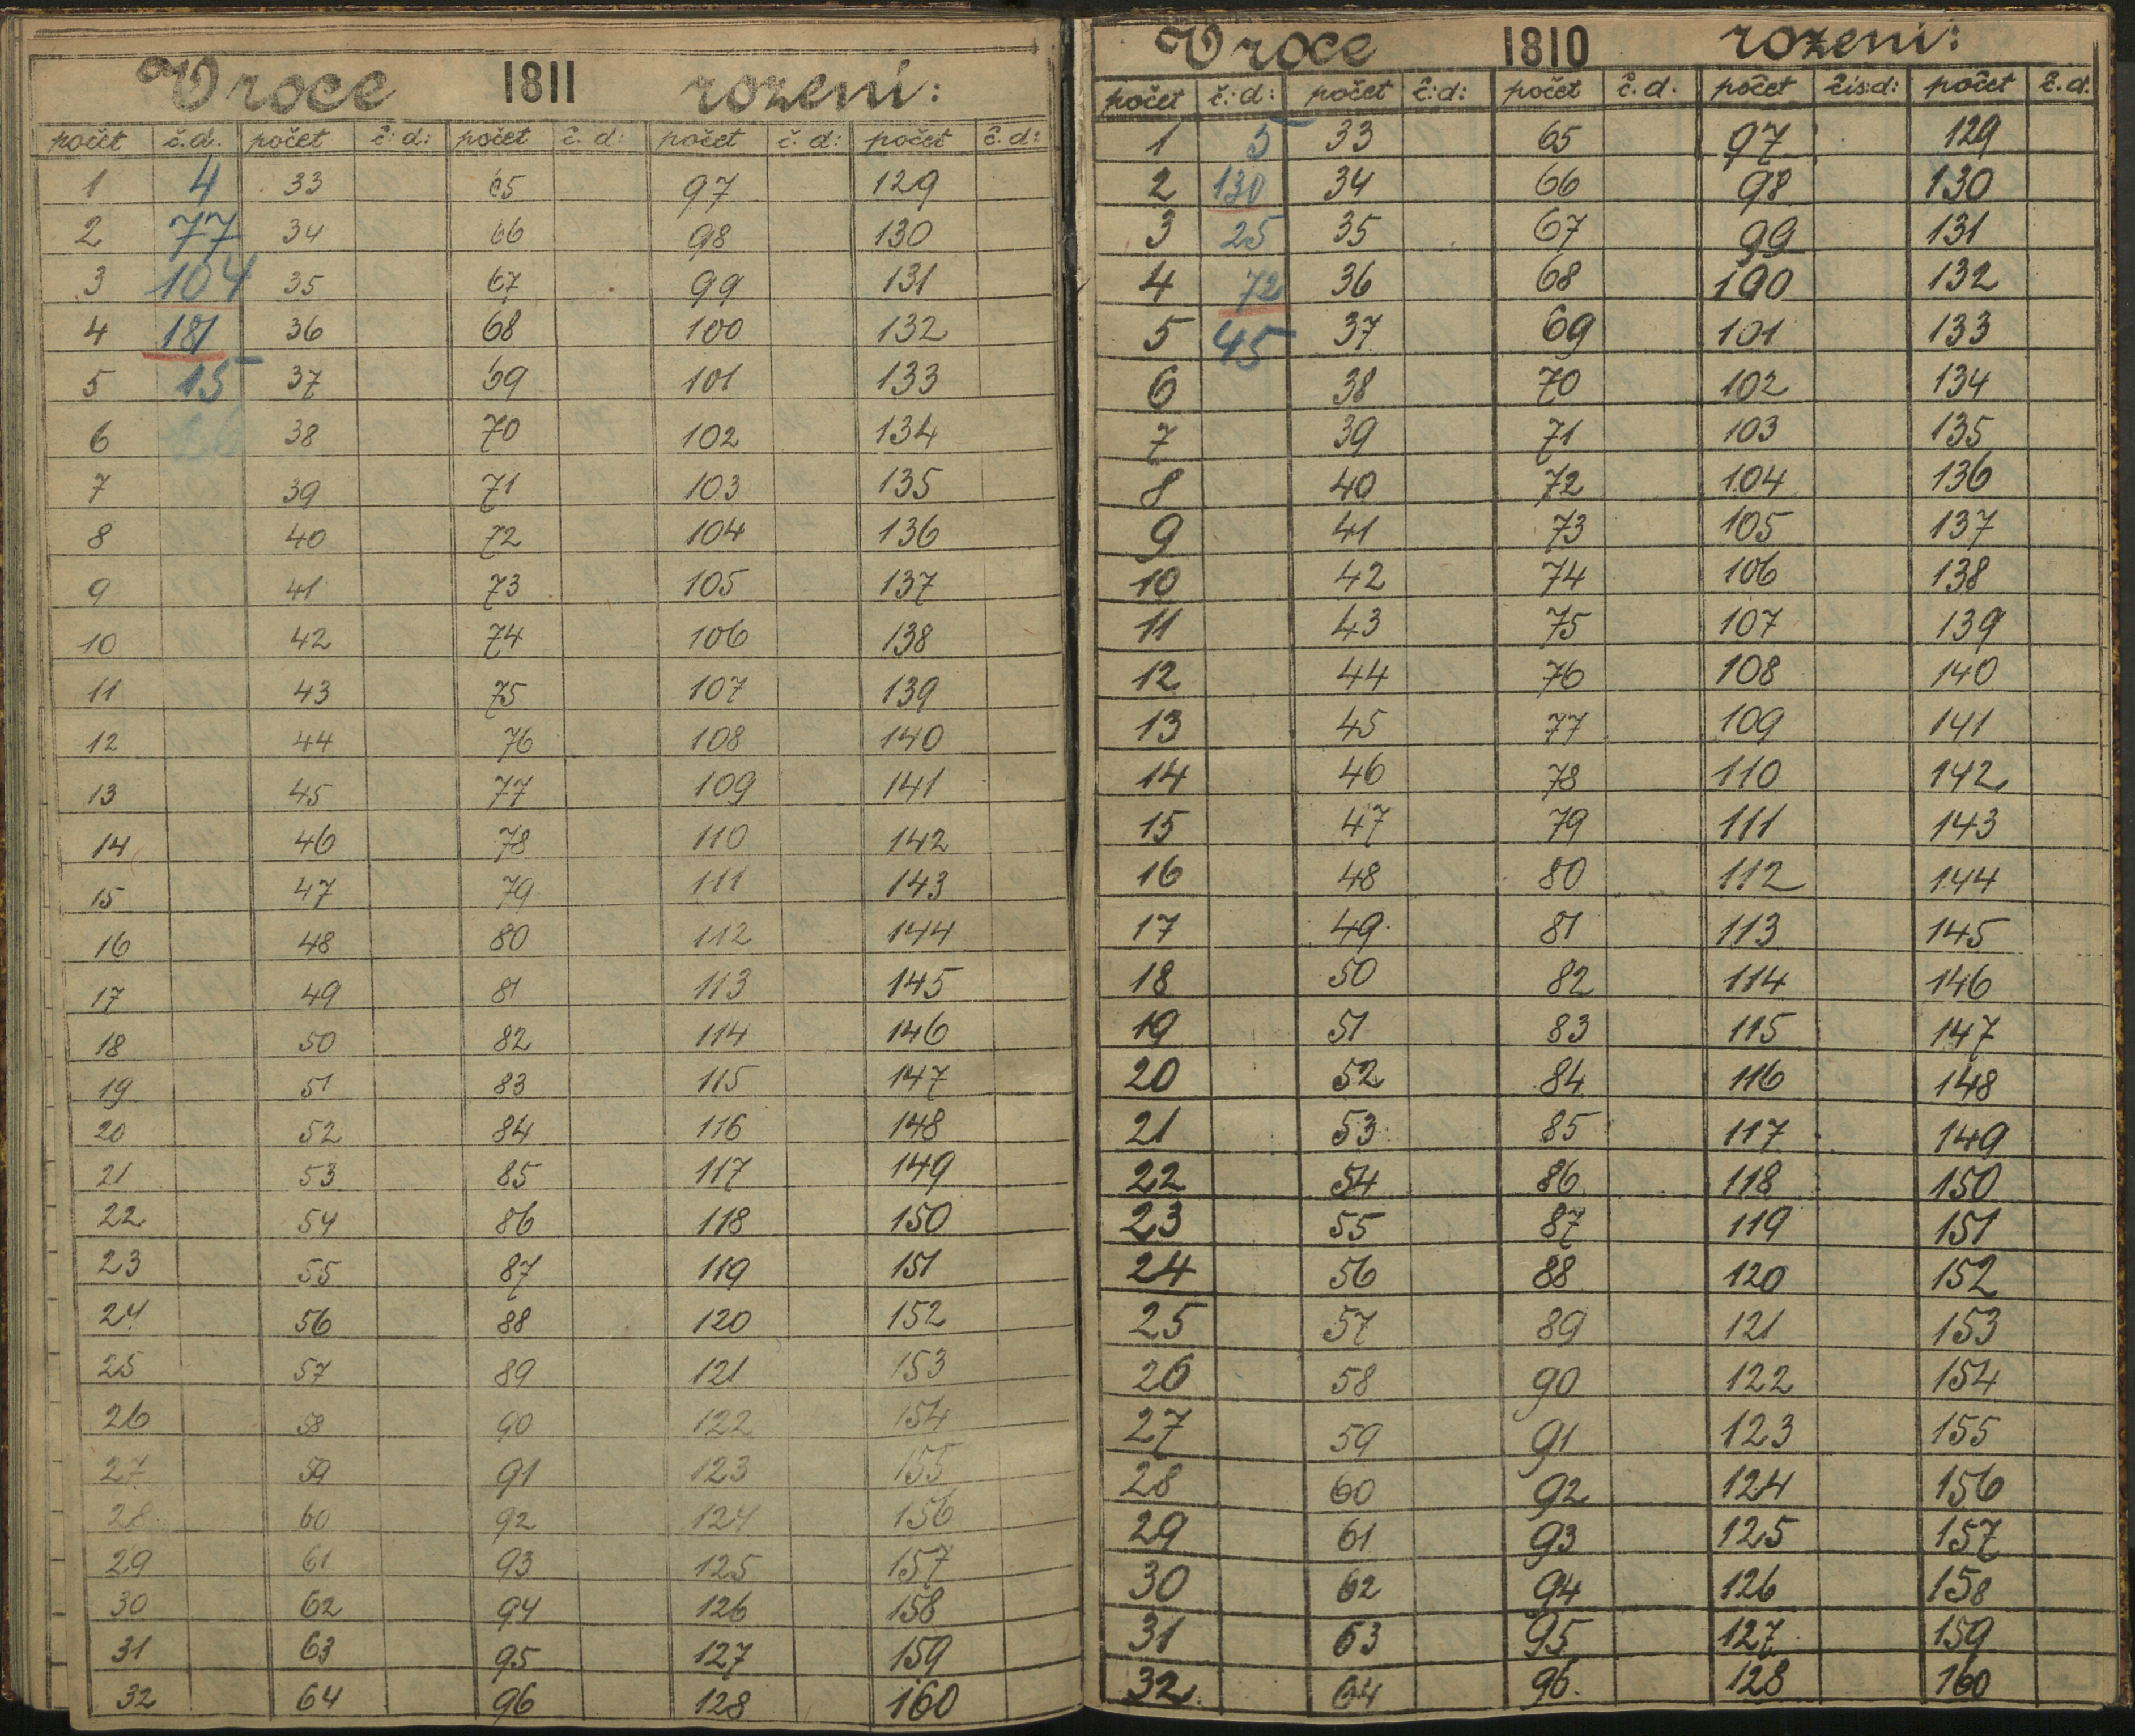 V roce 1811 rozeni:
počet č.d. počet č:d: počet č.d: počet č.d: počet č.d:
1 4 33 65 97 129
2 77 34 66 98 130
3 104 35 67 99 131
4 181 36 68 100 132
5 15 37 69 101 133
6 38 70 102 134
7 39 71 103 135
8 40 72 104 136
9 41 73 105 137
10 42 74 106 138
11 43 75 107 139
12 44 76 108 140
13 45 77 109 141
14 46 78 110 142
15 47 79 111 143
16 48 80 112 144
17 49 81 113 145
18 50 82 114 146
19 51 83 115 147
20 52 84 116 148
21 53 85 117 149
22 54 86 118 150
23 55 87 119 151
24 56 88 120 152
25 57 89 121 153
26 58 90 122 154
27 59 91 123 155
28 60 92 124 156
29 61 93 125 157
30 62 94 126 158
31 63 95 127 159
32 64 96 128 160
V roce 1810 rozeni:
počet č:d: počet č:d: počet č.d. počet čís:d: počet č.d.
1 5 33 65 97 129
2 130 34 66 98 130
3 25 35 67 99 131
4 72 36 68 100 132
5 45 37 69 101 133
6 38 70 102 134
7 39 71 103 135
8 40 72 104 136
9 41 73 105 137
10 42 74 106 138
11 43 75 107 139
12 44 76 108 140
13 45 77 109 141
14 46 78 110 142
15 47 79 111 143
16 48 80 112 144
17 49 81 113 145
18 50 82 114 146
19 51 83 115 147
20 52 84 116 148
21 53 85 117 149
22 54 86 118 150
23 55 87 119 151
24 56 88 120 152
25 57 89 121 153
26 58 90 122 154
27 59 91 123 155
28 60 92 124 156
29 61 93 125 157
30 62 94 126 158
31 63 95 127 159
32 64 96 128 160